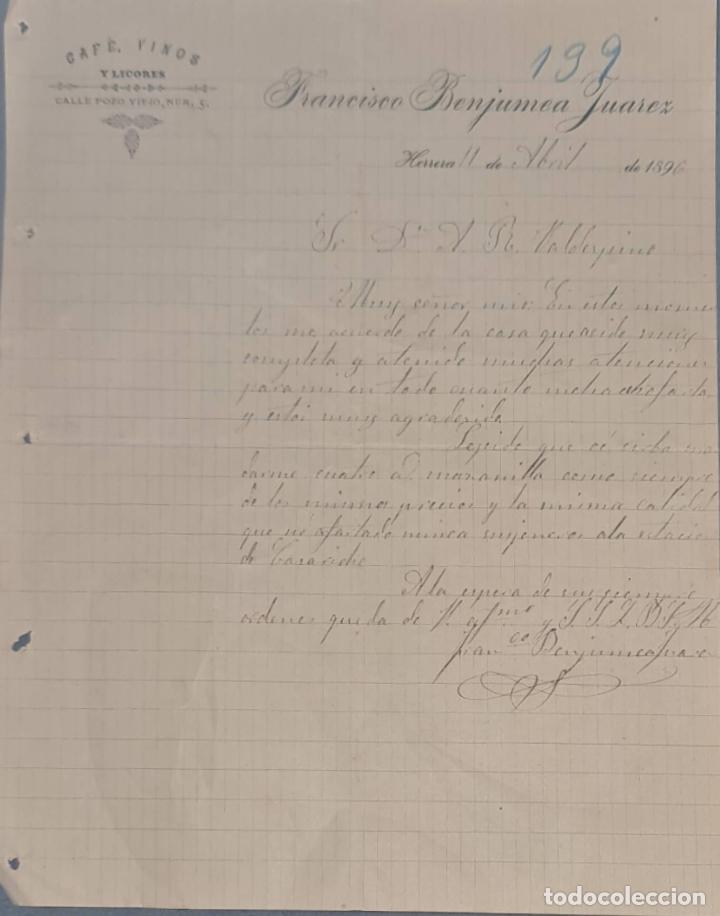 CAFÉ, VINOS
Y LICORES
CALLE POZO VIEJO, NÚM. 5.
199
Francisco Benjumea Juarez
Herrera 11 de Abril de 1896
Sr Dn A. R. Valdespino
Muy señor mio: En estos mome
tos me acuerdo de la casa que a sido muy
completa y atenido muchas atenciones
para mi en todo cuanto
y estoi muy agradesido
que sé sirba man
darme cuatro @ manzanilla como siempre
de los mismos precios y la misma calidad
que no nunca a la estacion
de Casariche
A la espera de sus siempre
ordenes queda de V. afmo y S. S. Q. B. S. M
Francco Benjumea Juarez
todocoleccion.net